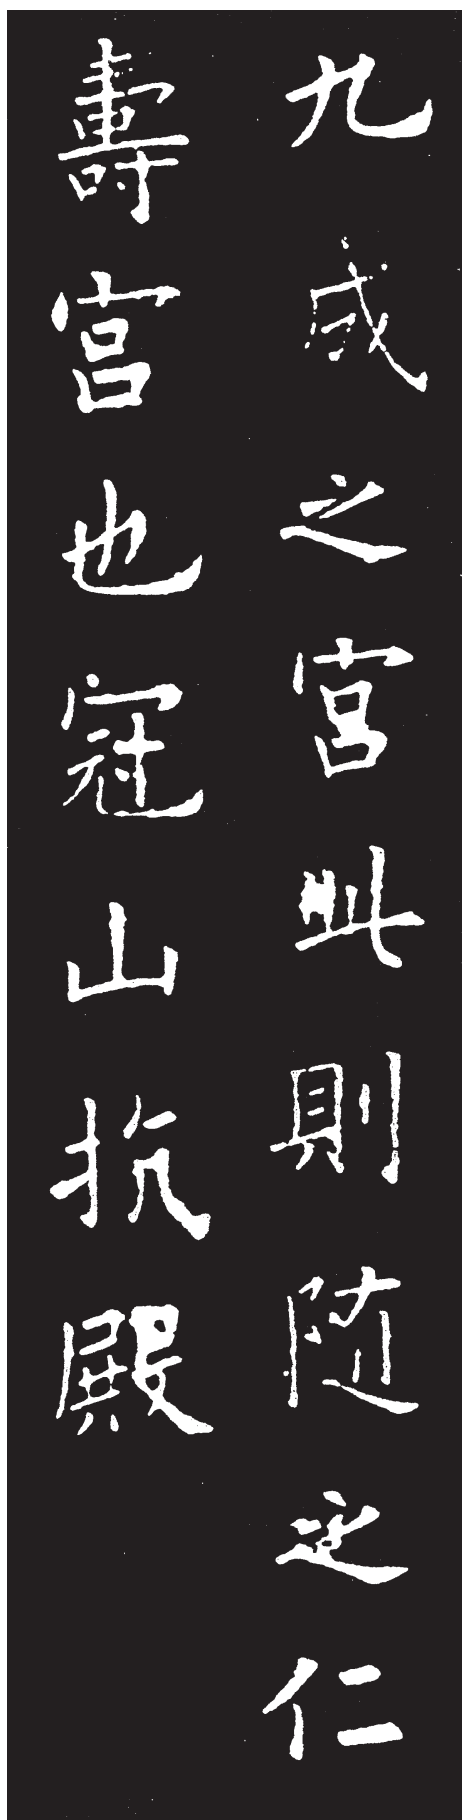 九成之宮此則隨之仁
壽宮也冠山抗殿